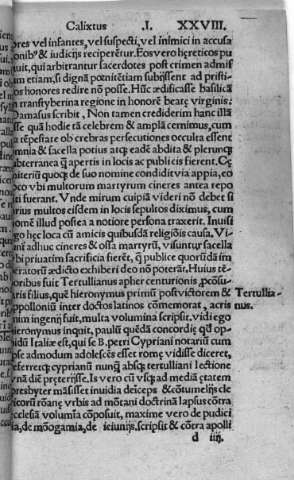 Calixtus .I. XXVIII.
ores vel infantes, vel suspecti, vel inimici in accusa
onibꝰ & iudicijs reciperẽtur. Eos vero hęreticos pu
uit, qui arbitrantur sacerdotes post crimen admis
um etiam, si digna pœnitẽtiam subijssent ad pristi-
os honores redire nõ posse. Hũc ædificasse basilicã
n transtyberina regione in honorẽ beatę virginis:
Damasus scribit, Non tamen crediderim hanc illã
sse quã hodie tã celebrem & amplã cernimus, cum
a tẽpestate ob crebras persecutiones occulta essent
omnia & sacella potius atqꝫ eadẽ abdita & plerunqꝫ
ubterranea ꝗ̃ apertis in locis ac publicis fierent. Cę
niteriũ quoqꝫ de suo nomine condidit via appia, eo
oco vbi multorum martyrum cineres antea repo
iti fuerant. Vnde mirum cuipiã videri nõ debet si
rius multos eisdem in locis sepulcos diximus, cum
omẽ illud postea a notiore persona traxerit. Inuisi
go hęc loca cũ amicis quibusdã religiõis causa, Vi-
ni adhuc cineres & ossa martyrũ, visuntur sacella
bi priuatim sacrificia fierẽt, ꝗ̃ publice quorsũdã im
eratorũ ædicto exhiberi deo nõ poterãt. Huius tẽ-
oribus fuit Tertullianus apher centurionis ꝓcõsu-
aris filius, quẽ hieronymus primũ post victorem &
Tertullia-
nus.
pollloniũ inter doctos latinos cõmemorat, acris
nim ingenij fuit, multa volumina scripsit. vidi ego
ieronymus inquit, paulũ quẽdã concordię qđ op-
pidũ Italiæ est, qui se B. petri Cypriani notariũ cum
pse admodum adolescẽs esset romę vidisse diceret,
eferretqꝫ cyprianũ nunqꝫ absqꝫ tertulliani lectione
vnã diẽ pręterijsse. Is vero cũ vsqꝫ ad mediã ętatem
resbyter mãsisset inuidia deinceps & cõtumelijs cle
icorũ romanę vrbis ad mõtani doctrinã lapsus cõtra
cclesiã volumĩa cõposuit, maxime vero de pudici
ia, de mõogamia, de ieiunijs. scripsit & cõtra apolli
d iiij.